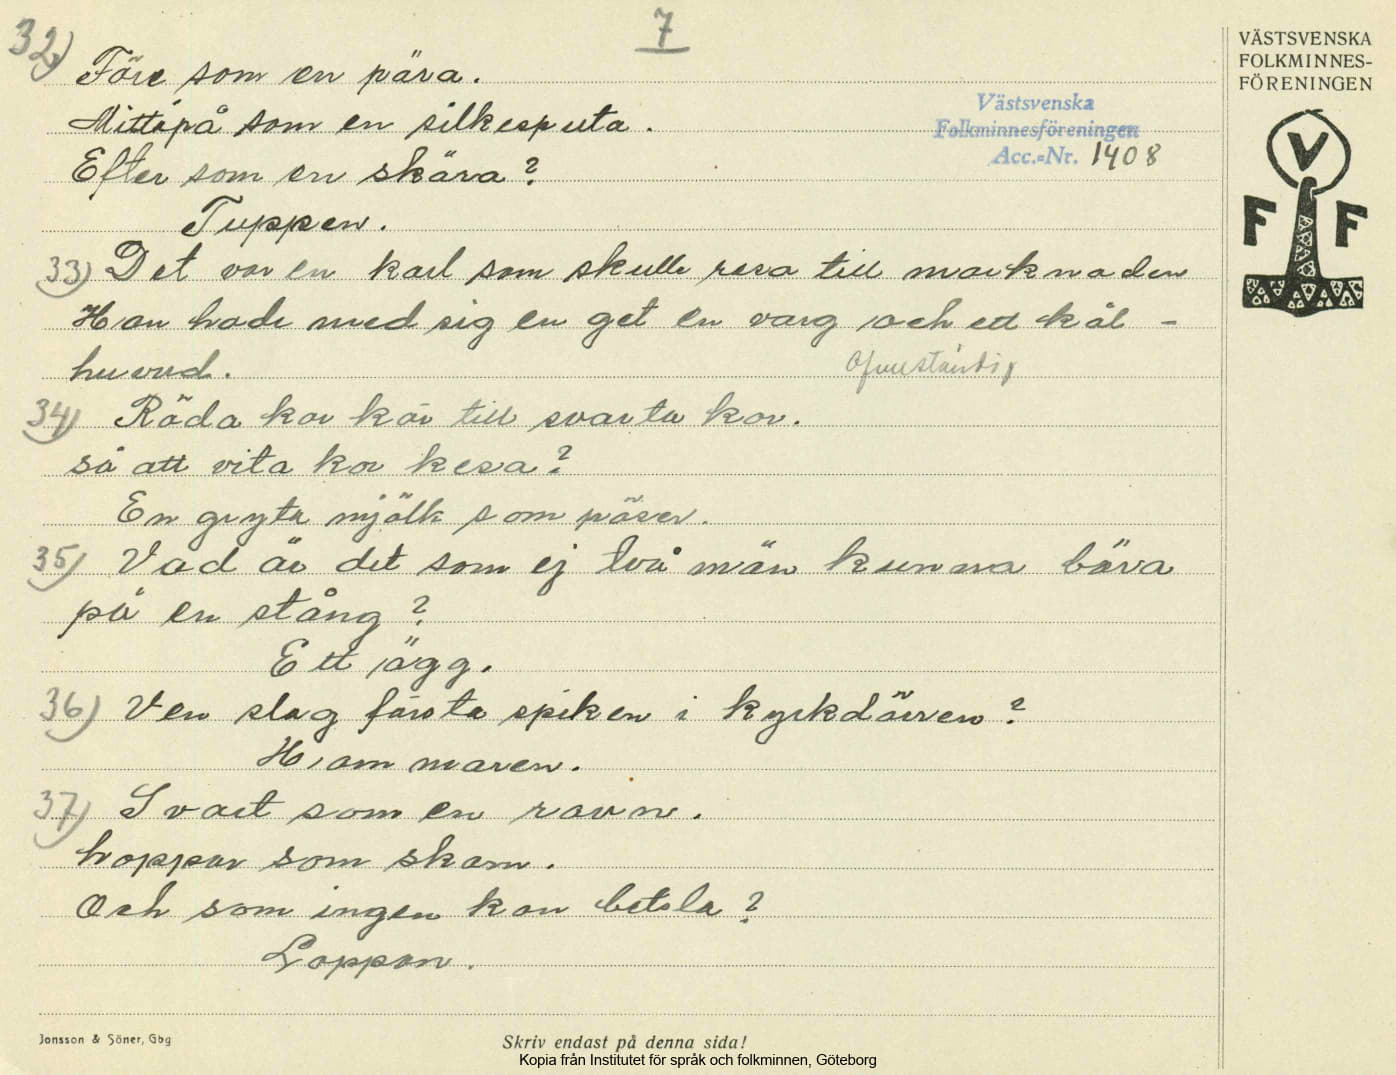 7
32)
Före som en pära.
Mittåpå som en silkesputa.
Efter som en skära?
Tuppen.
33) Det var en karl som skulle resa till marknaden
Han hade med sig en get en varg och ett kål-
huvud.
Ofuuständig
34) Röda kor kör till svarta kor.
så att vita kor kesa?
En gryta mjölk som päser.
35) Vad är det som ej två män kunna bära
på en stång?
Ett ägg.
36) Ven slag första spiken i kyrkdörren?
Hammaren.
37) Svart som en ravn.
hoppar som skam.
Och som ingen kan betsla?
Loppan.
Västsvenska
Folkminnesföreningen
Acc.-Nr. 1408
VÄSTSVENSKA
FOLKMINNES-
FÖRENINGEN
V
F F
Jonsson & Söner, Gbg
Skriv endast på denna sida!
Kopia från Institutet för språk och folkminnen, Göteborg